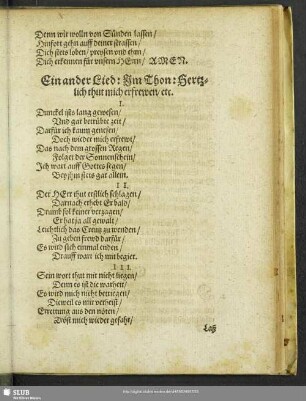 Denn wir wolln von Sünden lassen/
Hinfort gehn auff deiner strassen/
Dich stets loben/ preysen vnd ehrn/
Dich erkennen für vnsern HErrn/ AMEN.
Ein ander Lied: Im Thon: Hertz-
lich thut mich erfrewen/ etc.
I.
Dunckel ists lang gewesen/
Vnd gar betrübte zeit/
Darfür ich kaum genesen/
Doch wieder mich erfrewt/
Das nach dem grossen Regen/
Folget der Sonnenschein/
Ich wart auff Gottes segen/
Bey jhm stets gar allein.
II.
Der HErr thut erstlich schlagen/
Darnach erhebt Er bald/
Drumb sol keiner verzagen/
Er hat ja all gewalt/
Leichtlich das Creutz zu wenden/
Zu geben frewd darfür/
Es wird sich einmal enden/
Drauff wart ich mit begier.
III.
Sein wort that mir nicht liegen/
Denn es ist die warheit/
Es wird mich nicht betriegen/
Dieweil es mir verheist/
Errettung aus den nöten/
Tröst mich wieder gefahr/
Laß
SLUB